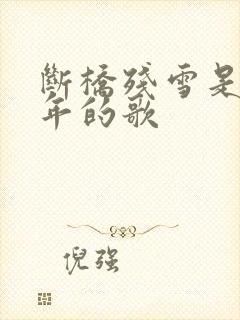 斷橋殘雪是
年的歌
倪强